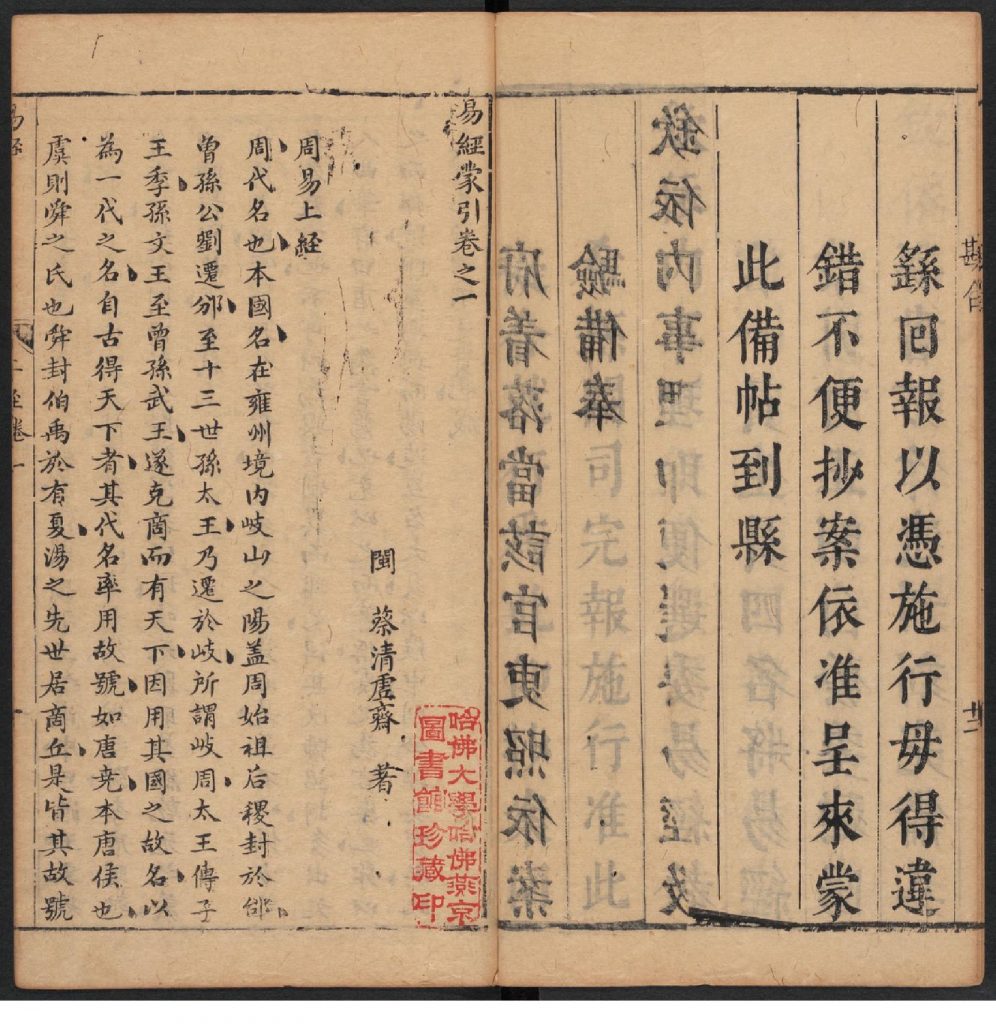 勘合
繇回報以憑施行毋得違
錯不便抄案依准呈來蒙
此備帖到縣
欽依內事理即便選委易經教
驗備奉
府着落當該官吏照依案
易經蒙引卷之一
閩 蔡清虛齋 著
周易上經
周代名也本國名在雍州境內岐山之陽蓋周始祖后稷封於邰
曾孫公劉遷邠至十三世孫太王乃遷於岐所謂岐周太王傳子
王季孫文王至曾孫武王遂克商而有天下因用其國之故名以
為一代之名自古得天下者其代名率用故號如唐堯本唐侯也
虞則舜之氏也舜封伯禹於有夏湯之先世居商丘是皆其故號
哈佛大學哈佛燕京
圖書館珍藏印